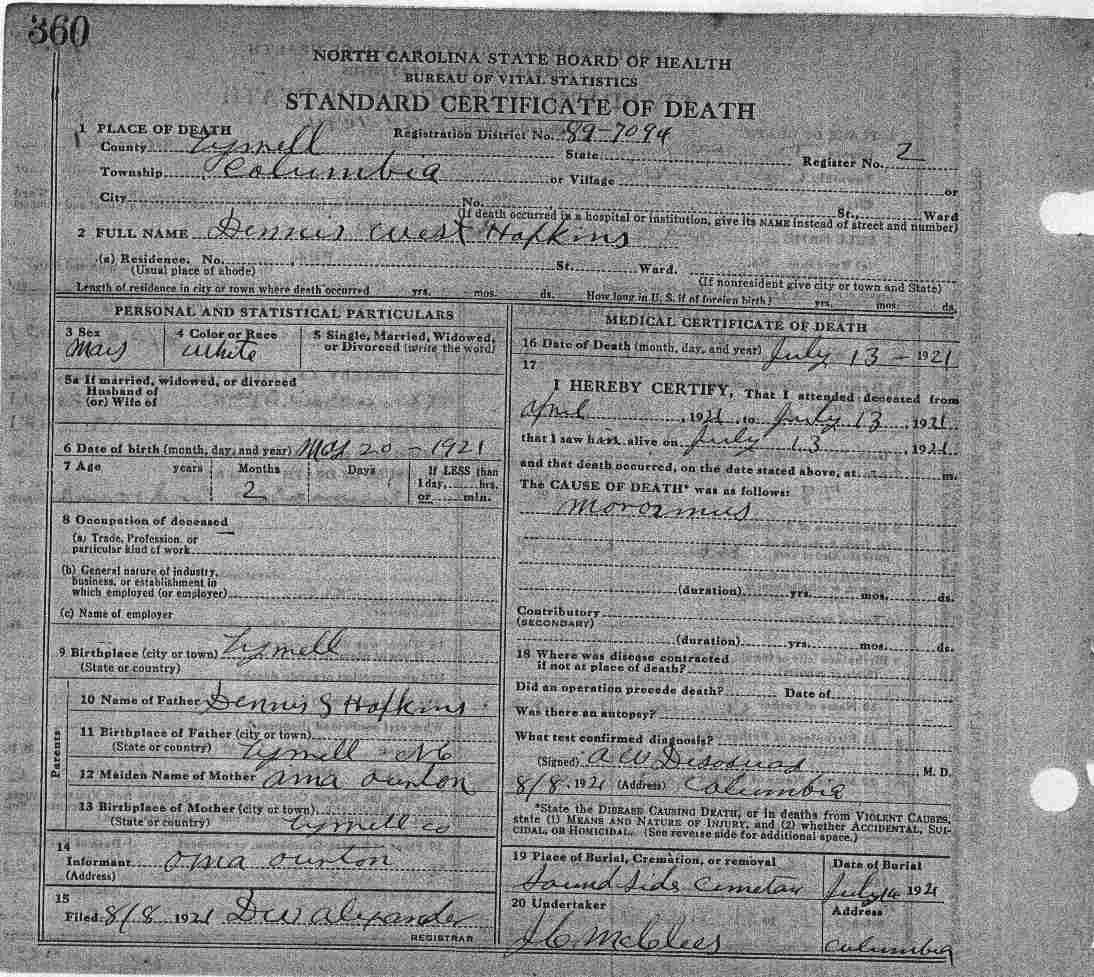 360
NORTH CAROLINA STATE BOARD OF HEALTH
BUREAU OF VITAL STATISTICS
STANDARD CERTIFICATE OF DEATH
1 PLACE OF DEATH Registration District No. 89-7094
County Tyrrell State Register No. 2
Township Columbia or Village or
City No. St., Ward
(If death occurred in a hospital or institution, give its NAME instead of street and number)
2 FULL NAME Dennis West Hopkins
(a) Residence. No. St. Ward.
(Usual place of abode) (If nonresident give city or town and State)
Length of residence in city or town where death occurred yrs. mos. ds. How long in U. S. if of foreign birth? yrs. mos. ds.
PERSONAL AND STATISTICAL PARTICULARS
3 Sex 4 Color or Race 5 Single, Married, Widowed,
or Divorced (write the word)
White
5a If married, widowed, or divorced
Husband of
(or) Wife of
6 Date of birth (month, day, and year) May 20 - 1921
7 Age years Months Days If LESS than
1 day, hrs.
2 or min.
8 Occupation of deceased
(a) Trade, Profession, or
particular kind of work
(b) General nature of industry,
business, or establishment in
which employed (or employer)
(c) Name of employer
9 Birthplace (city or town) Tyrrell
(State or country)
Parents
10 Name of Father Dennis S Hopkins
11 Birthplace of Father (city or town)
(State or country) Tyrrell NC
12 Maiden Name of Mother
13 Birthplace of Mother (city or town)
(State or country) Tyrrell Co
14
Informant
(Address)
15
Filed 8/8 1921 DW Alexander
REGISTRAR
MEDICAL CERTIFICATE OF DEATH
16 Date of Death (month, day, and year) July 13 - 1921
17
I HEREBY CERTIFY, That I attended deceased from
April , 1921, to July 13, 1921
that I saw h alive on July 13, 1921
and that death occurred, on the date stated above, at m.
The CAUSE OF DEATH* was as follows:
(duration) yrs. mos. ds.
Contributory
(SECONDARY)
(duration) yrs. mos. ds.
18 Where was disease contracted
if not at place of death?
Did an operation precede death? Date of
Was there an autopsy?
What test confirmed diagnosis?
(Signed) A W M. D.
8/8 . 1921 (Address) Columbia
*State the DISEASE CAUSING DEATH, or in deaths from VIOLENT CAUSES,
state (1) MEANS AND NATURE OF INJURY, and (2) whether ACCIDENTAL, SUI-
CIDAL, OR HOMICIDAL. (See reverse side for additional space.)
19 Place of Burial, Cremation, or removal Date of Burial
Sound Side July 14 1921
20 Undertaker Address
J C McClees Columbia